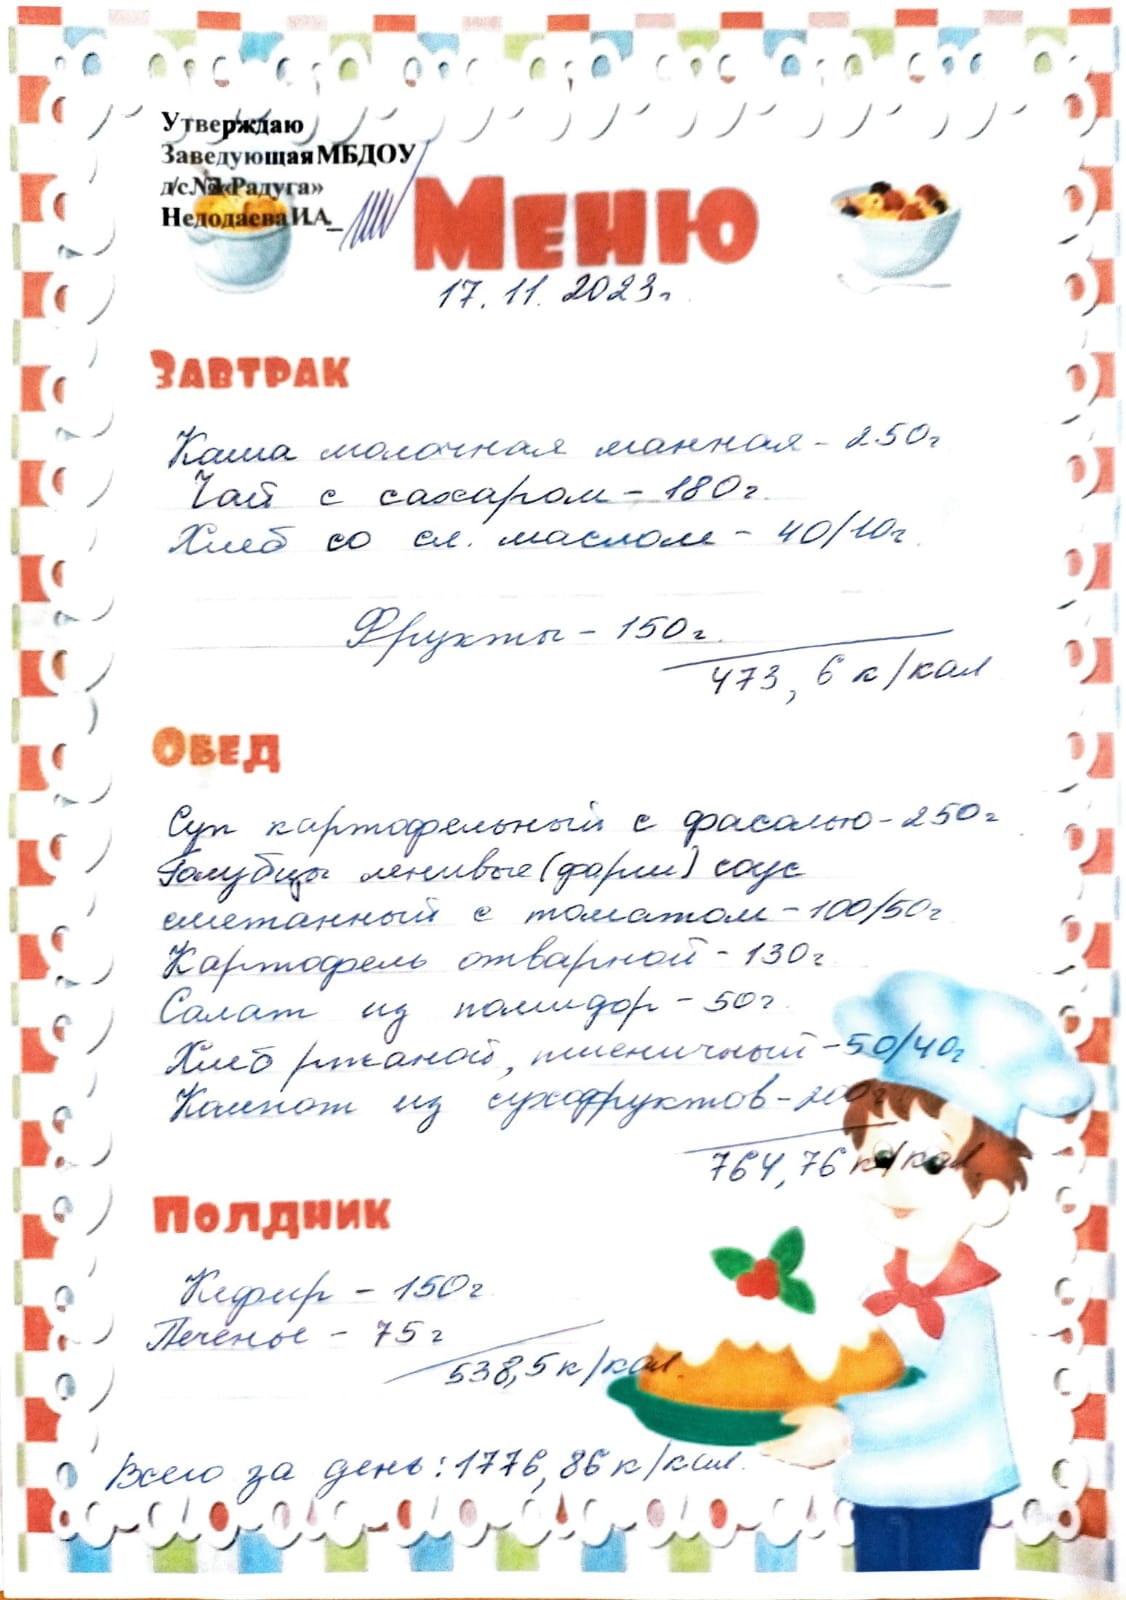 Утверждаю
Заведующая МБДОУ
д/с № «Радуга»
Недодаева И.А_
Меню
17.11.2023г.
Завтрак
Каша молочная манная - 250г
Чай с сахаром - 180г.
Хлеб со сл. маслом - 40/10г.
Фрукты - 150г.
473,6 к/кал
Обед
Суп картофельный с фасолью - 250г
Голубцы ленивые (фарш) соус
сметанный с томатом - 100/50г
Картофель отварной - 130г
Салат из помидор - 50г
Хлеб ржаной, пшеничный - 50/40г
Компот из сухофруктов - 200г
764,76 к/кал.
Полдник
Кефир - 150г
Печенье - 75г
538,5 к/кал.
Всего за день: 1776,86 к/кал.